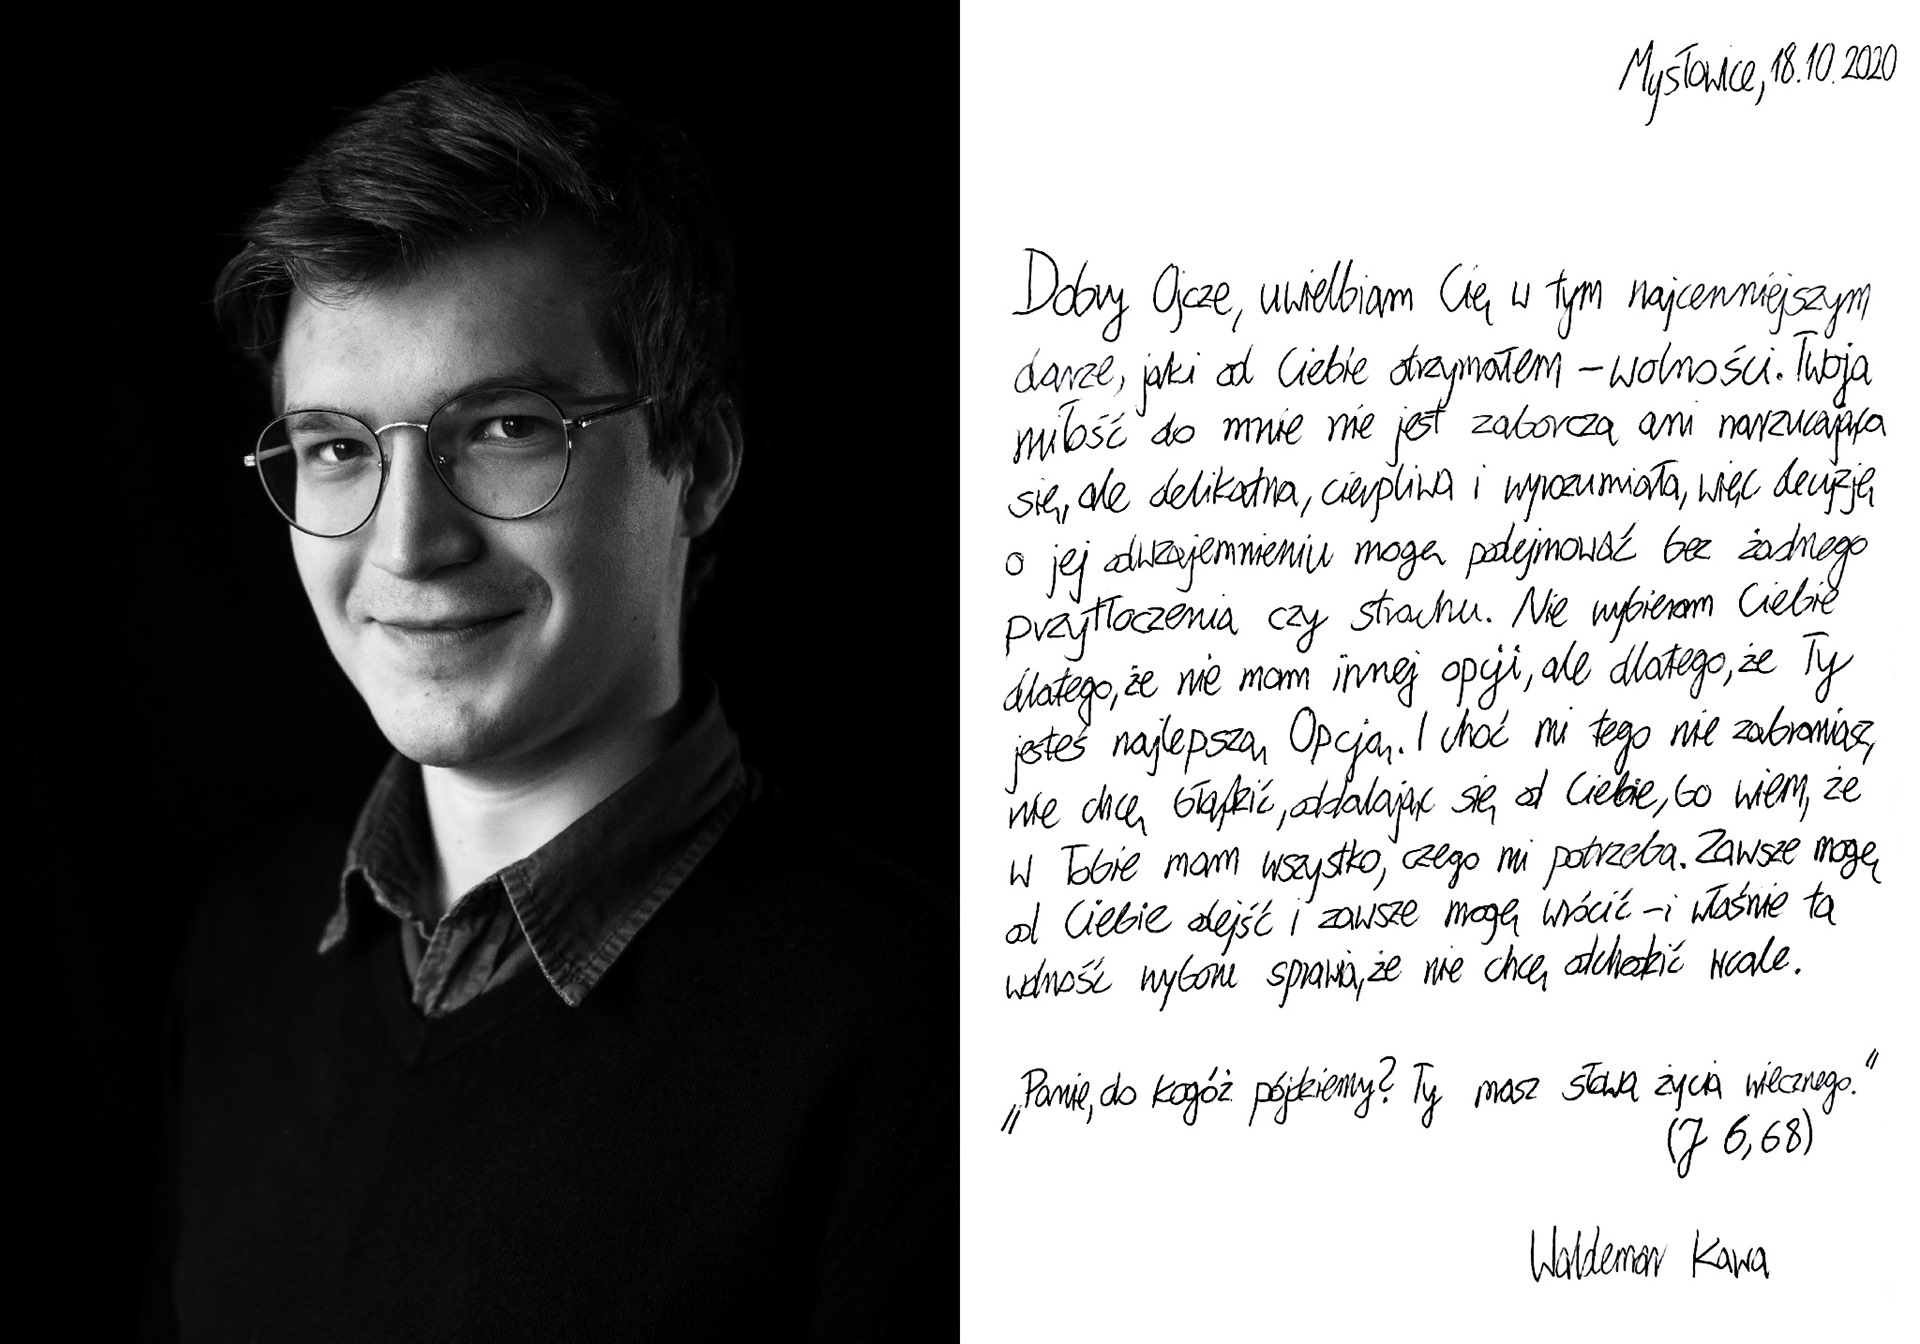 Mysłowice, 18.10.2020
Dobry Ojcze, uwielbiam Cię w tym najcenniejszym
darze, jaki od Ciebie otrzymałem – wolności. Twoja
miłość do mnie nie jest zaborcza ani narzucająca
się, ale delikatna, cierpliwa i wyrozumiała, więc decyzję
o jej odwzajemnieniu mogę podejmować bez żadnego
przytłoczenia czy strachu. Nie wybieram Ciebie
dlatego, że nie mam innej opcji, ale dlatego, że Ty
jesteś najlepszą Opcją. I choć mi tego nie zabraniasz,
nie chcę błądzić, oddalając się od Ciebie, bo wiem, że
w Tobie mam wszystko, czego mi potrzeba. Zawsze mogę
od Ciebie odejść i zawsze mogę wrócić – i właśnie ta
wolność wyboru sprawia, że nie chcę odchodzić wcale.
„Panie, do kogóż pójdziemy? Ty masz słowa życia wiecznego.”
(J 6,68)
Waldemar Kawa